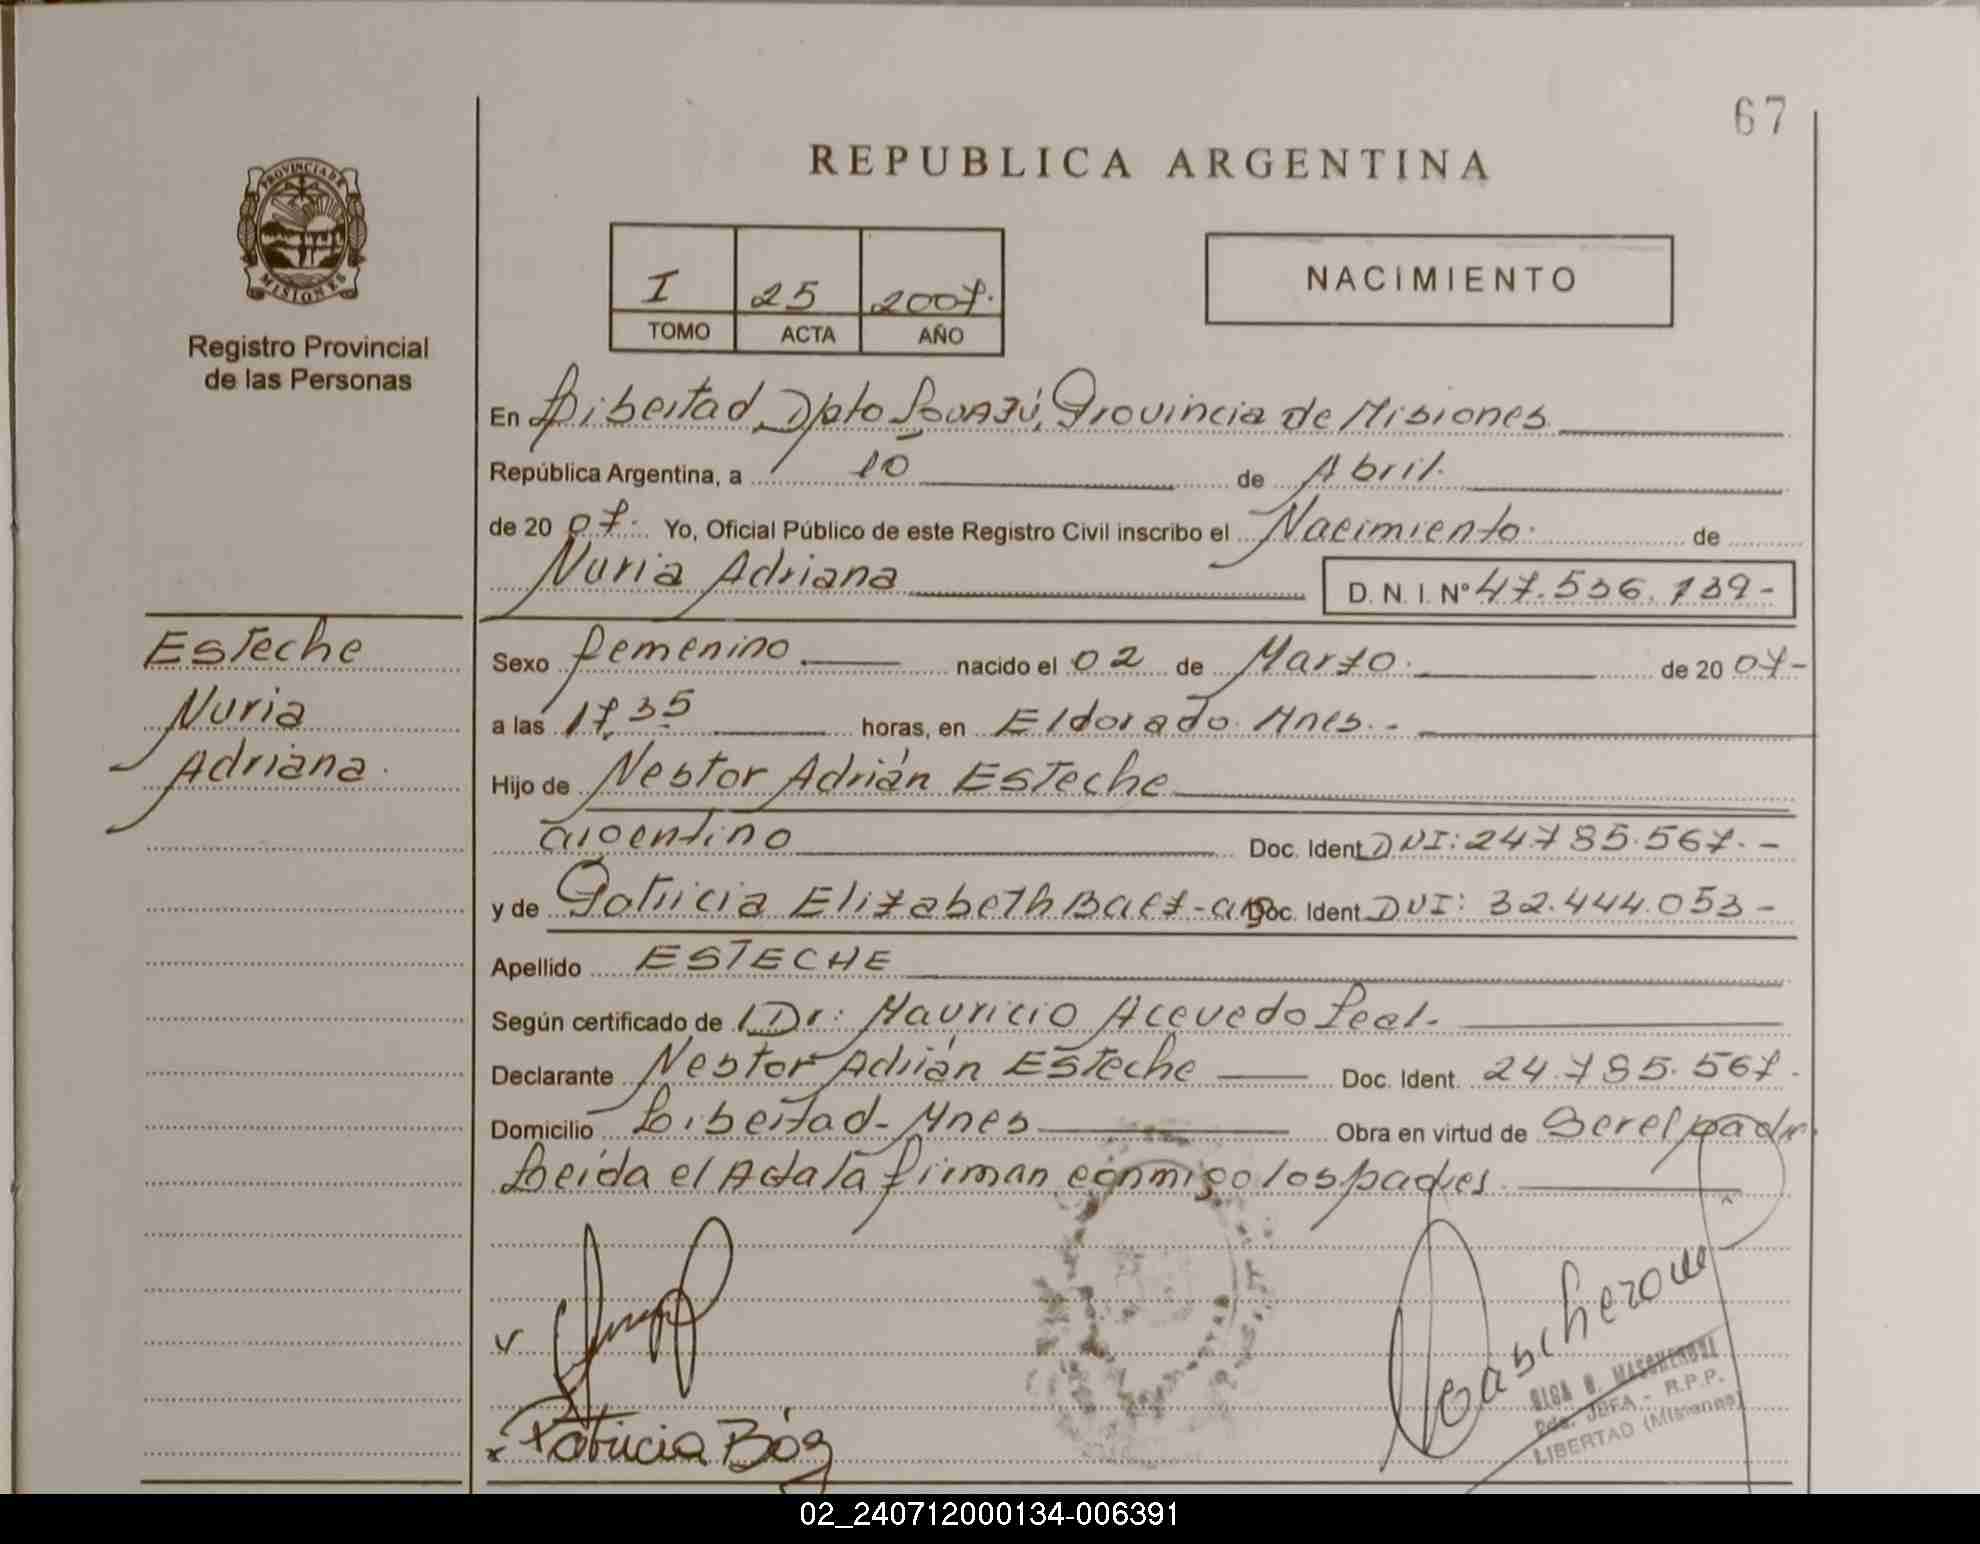 67
REPUBLICA ARGENTINA
PROVINCIA DE
MISIONES
Registro Provincial
de las Personas
I 25 2007.
TOMO ACTA AÑO
NACIMIENTO
En Libertad, Dpto Iguazú, Provincia de Misiones
República Argentina, a 10 de Abril.
de 20 07. Yo, Oficial Público de este Registro Civil inscribo el Nacimiento. de
Nuria Adriana D. N. I. Nº 47.536.139-
Esteche
Nuria
Adriana.
Sexo femenino nacido el 02 de Marzo. de 20 07-
a las 17,35 horas, en Eldorado. Mnes.-
Hijo de Nestor Adrián Esteche
argentino Doc. Ident DNI: 24.785.567.-
y de Patricia Elizabeth Baez-arg Doc. Ident DNI: 32.444.053-
Apellido ESTECHE
Según certificado de Dr: Mauricio Acevedo Leal.
Declarante Nestor Adrián Esteche Doc. Ident. 24.785.567.
Domicilio Libertad- Mnes Obra en virtud de Ser el padre
Leída el Acta la firman conmigo los padres
Patricia Báez
Mascheroni
OLGA MASCHERONI
JEFA - R.P.P.
LIBERTAD (Misiones)
02_240712000134-006391